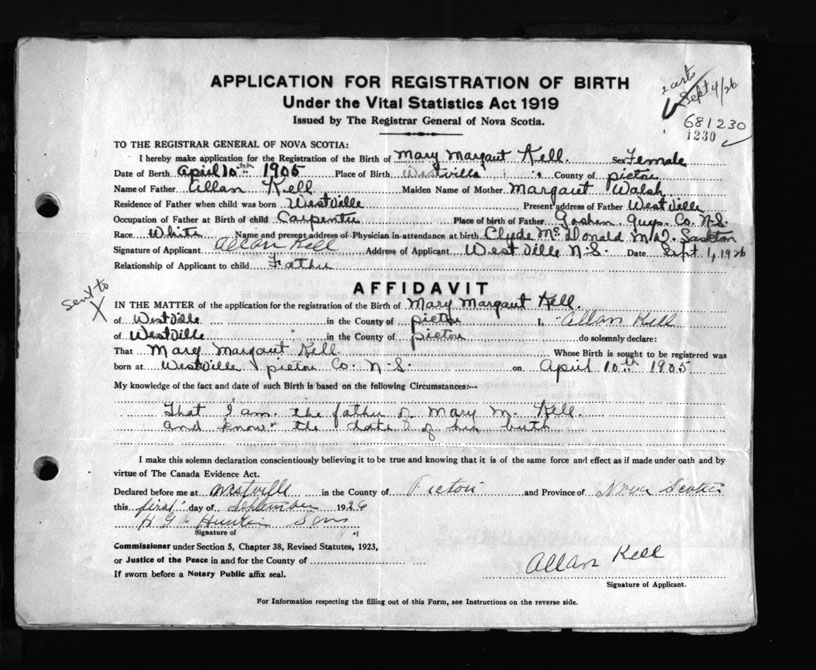 APPLICATION FOR REGISTRATION OF BIRTH
Under the Vital Statistics Act 1919
Issued by The Registrar General of Nova Scotia.
Sept 4/26
681230
1230
TO THE REGISTRAR GENERAL OF NOVA SCOTIA:
I hereby make application for the Registration of the Birth of Mary Margaut Kell. Sex Female
Date of Birth April 10th 1905 Place of Birth Westville County of pictou
Name of Father Allan Kell Maiden Name of Mother Margaut Walsh
Residence of Father when child was born Westville Present address of Father Westville
Occupation of Father at Birth of child Carpenter Place of birth of Father Goshen Guys. Co. N.S.
Race White Name and present address of Physician in attendance at birth Clyde Mc Donald M.D.
Signature of Applicant Allan Kell Address of Applicant Westville N.S. Date Sept. 1, 1926
Relationship of Applicant to child Father
AFFIDAVIT
Sent to X
IN THE MATTER of the application for the registration of the Birth of Mary Margaut Kell.
of Westville in the County of pictou I, Allan Kell
of Westville in the County of pictou do solemnly declare:
That Mary Margaut Kell Whose Birth is sought to be registered was
born at Westville pictou Co. N.S. on April 10th 1905
My knowledge of the fact and date of such Birth is based on the following Circumstances:—
That I am the father of Mary M. Kell.
and know the date of her birth
I make this solemn declaration conscientiously believing it to be true and knowing that it is of the same force and effect as if made under oath and by
virtue of The Canada Evidence Act.
Declared before me at Westville in the County of Pictou and Province of Nova Scotia
this first day of September 1926
Signature of
Commissioner under Section 5, Chapter 38, Revised Statutes, 1923,
or Justice of the Peace in and for the County of
If sworn before a Notary Public affix seal.
Allan Kell
Signature of Applicant.
For Information respecting the filling out of this Form, see Instructions on the reverse side.